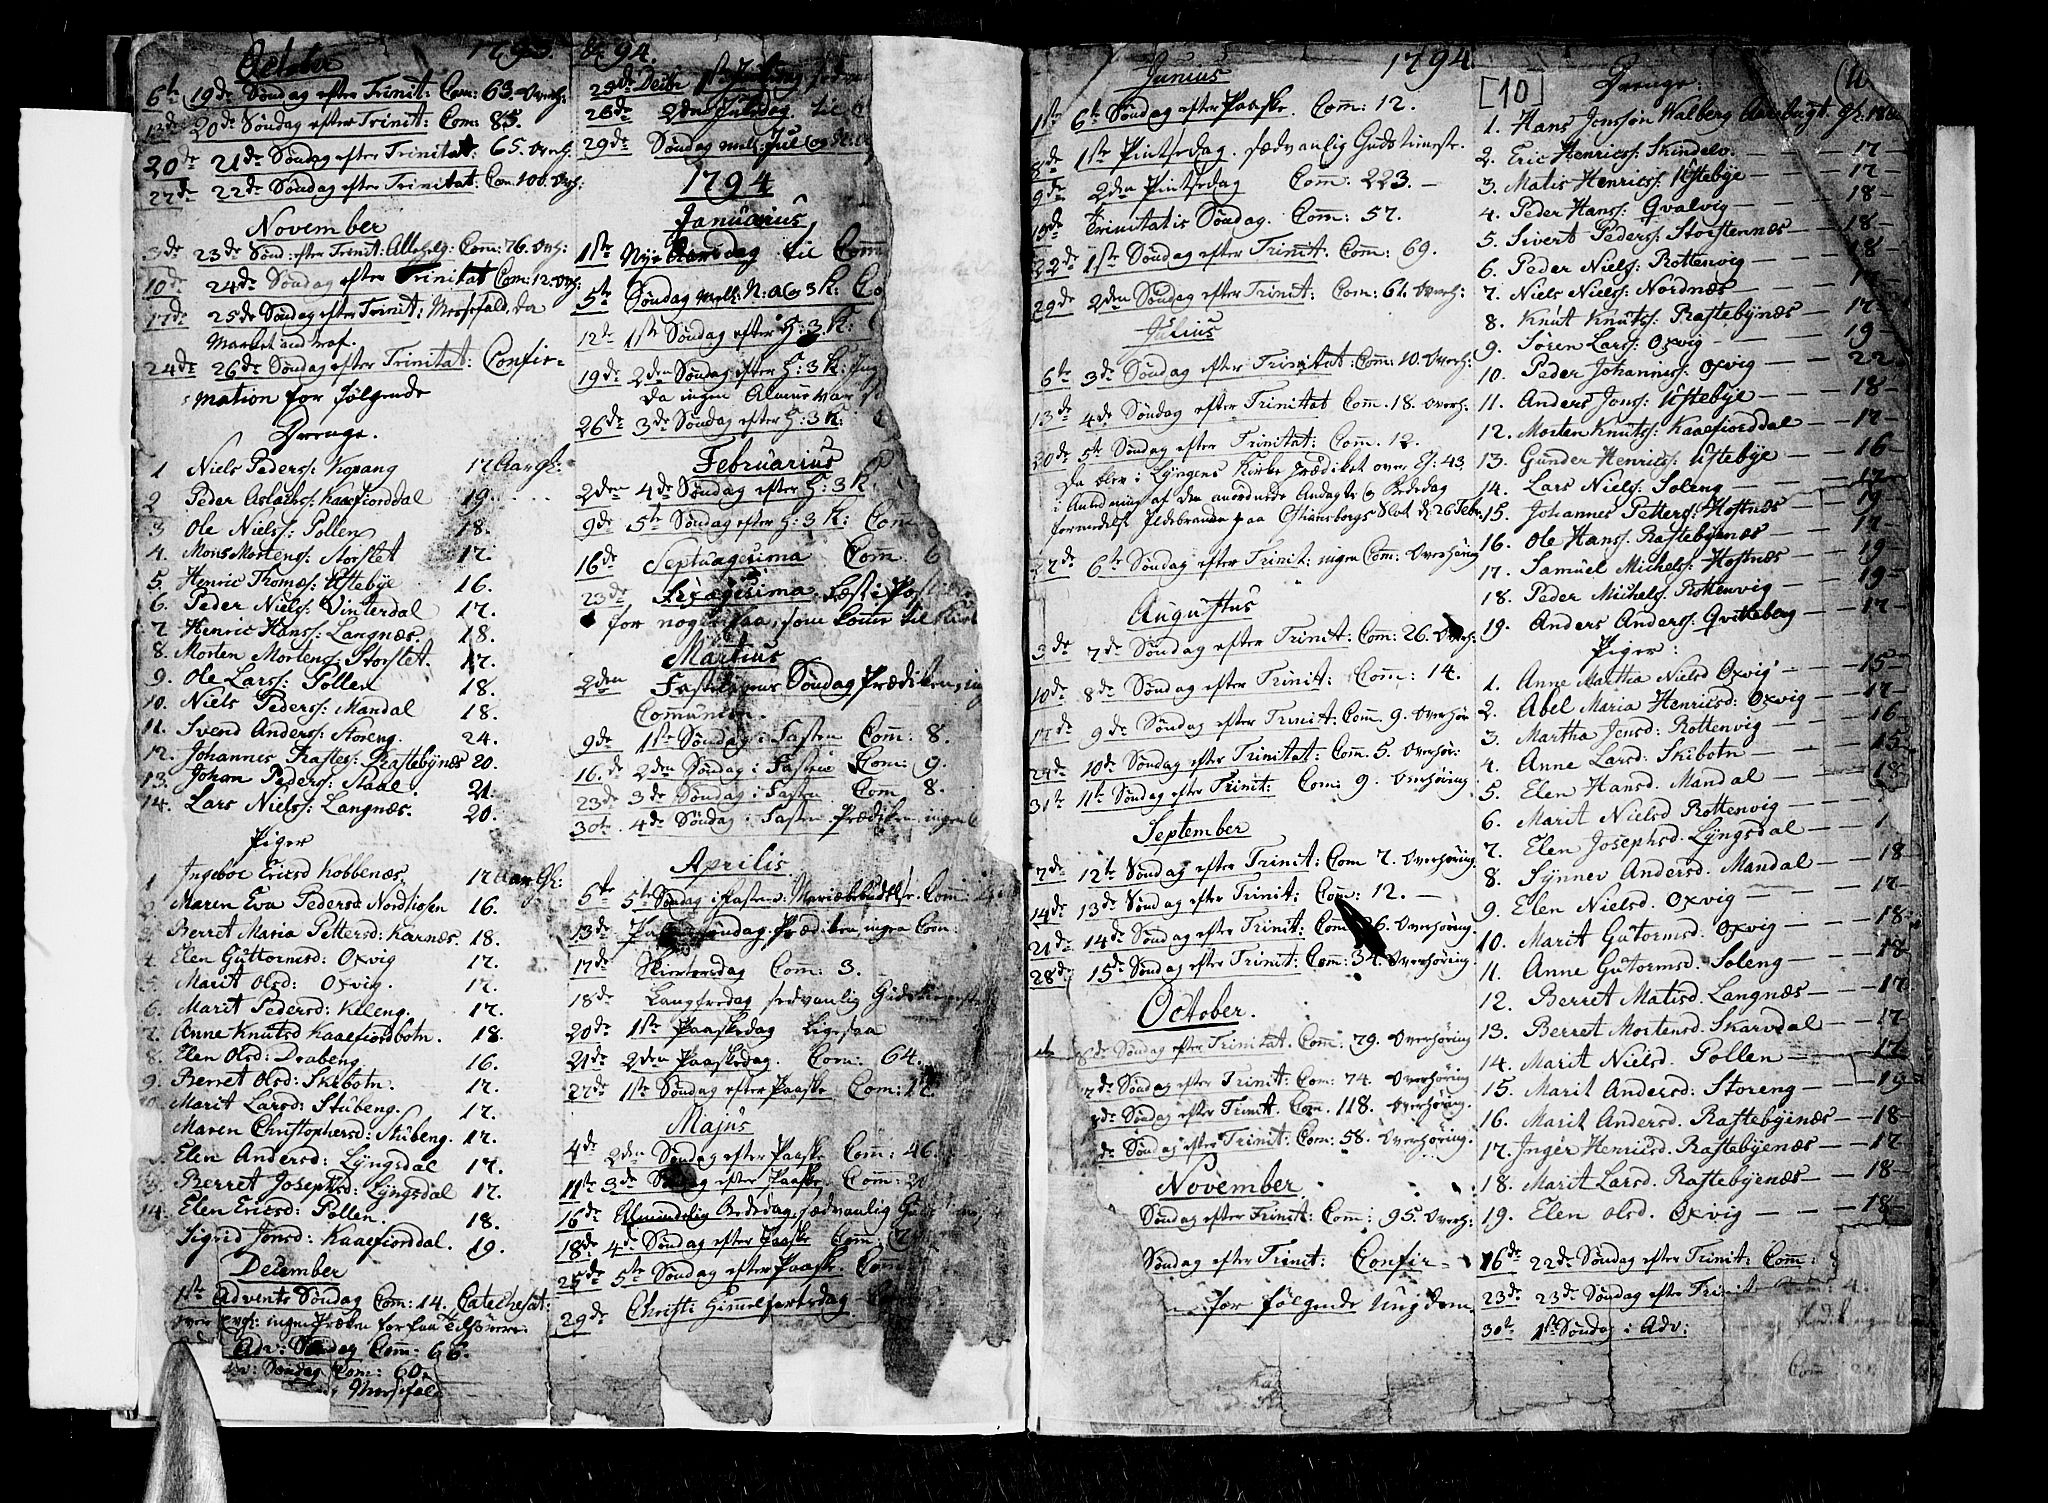 October 1793.
6te 19de Søndag efter Trinit: Com: 63. Overh:
13de 20de Søndag efter Trinit: Com: 85.
20de 21de Søndag efter Trinitat: 65. Overh:
27de 22de Søndag efter Trinitat: Com: 100. Overh:
November
3de 23de Sønd: efter Trinit: Allehelg: Com: 76. Ovh:
10de 24de Søndag efter Trinitat Com: 12. Ovh:
17de 25de Søndag efter Trinit: Messefald, da
Market ind traf.
24de 26de Søndag efter Trinitat: Confir-
mation for følgende
Drenge.
1 Niels Peders: Kopang 17 Aar Gl:
2 Peder Aslachs: Kaaefiorddal 19.
3 Ole Niels: Pollen 18.
4. Mons Mortens: Storslet 17.
5. Henric Thomæs: Ufstebye 16.
6. Peder Niels: Vinterdal 17.
7 Henric Hans: Langnæs 18.
8. Morten Mortens: Storslet. 17.
9. Ole Lars: Pollen 18.
10. Niels Peders: Mandal 18.
11. Svend Anders: Storeng. 24.
12. Johannes Rastes: Rastebynæs 20.
13. Johan Peders: Staal 21.
14. Lars Niels: Langnæs. 20.
Piger
1 Ingebor Ericsd Kobbenæs 17 Aar Gl:
2 Maren Eva Pedersd: Nordkiosen 16.
3 Berret Maria Pettersd: Karnæs. 18.
4. Elen Guttormsd: Oxvig 17.
5. Marit Olsd: Oxvig. 17.
6. Marit Pedersd: Kileng. 17.
7. Anne Knutsd Kaaefiordbotn. 18.
8. Elen Olsd: Drabeng 16.
9. Berret Olsd: Skibotn. 17.
10. Marit Larsd: Stubeng. 17.
Maren Christophersd: Stubeng. 17.
Elen Andersd: Lÿngsdal 17.
13. Berret Josephsd: Lÿngsdal 17.
14. Elen Ericsd: Pollen. 18.
Sigrid Jonsd: Kaaefiorddal. 19.
December
1ste Advents Søndag Com: 14. Catechesat:
over Evgl: ingen Præken for faa Tilhørere.
Adv: Søndag Com: 66.
Adv: Søndag Com: 60.
Messefald
1794.
25de Decbr 1ste Juledag sædv
26de 2den Juledag.
29de Søndag mell: Jul og N:
1794
Januarius
1ste Nye Aarsdag til Com
5te Søndag Mell: N: a og 3 K: Co
12te 1ste Søndag efter H: 3. K:
19de 2den Søndag efter H: 3 K:
Da ingen Almue var
26de 3de Søndag efter H: 3 K:
Februarius
2den 4de Søndag efter H: 3 K
9de 5te Søndag efter H: 3 K: Com
16de Septuagesima Com 6
23de Sexagesima. Læst i Postillen
for nogle faa, som komme til Kirk
Martius
2den Fastelavns Søndag Prædiken, ing
Comunion.
9de 1ste Søndag i Fasten Com: 8.
16.de 2den Søndag i Fasten Com: 9.
23de 3de Søndag i Fasten Com 8.
30te. 4de Søndag i Fasten Prædiken ingen C
Aprilis.
6te 5te Søndag i Fasten. Mariæ bebudelse. Com:
13de Palme Søndag. Prædiken, ingen Com:
17de Skiertorsdag Com: 3.
18de Langfredag sedvanlig Gudstieneste
20de 1ste Paaskedag Ligesaa
21de 2den Paaskedag. Com: 64.
27de 1ste Søndag efter Paaske Com: 12.
Majus
4de 2den Søndag efter Paaske Com: 46.
11te 3de Søndag efter Paaske. Com: 20
16de Almindelig Bededag, sædvanlig Gudstieneste
18de 4de Søndag efter Paaske Com:
25de 5te Søndag efter Paaske. Com
29de Christi Himmelfartsdag
Junius 1794
1ste 6te Søndag efter Paaske. Com: 12.
8de 1ste Pintsedag. sædvanlig Gudstieneste.
9de 2den Pintsedag Com: 223. -
15de Trinitatis Søndag. Com: 57.
22de 1ste Søndag efter Trinit: Com: 69.
29de 2den Søndag efter Trinit: Com: 61. Overh:
Julius
6te 3de Søndag efter Trinitat: Com: 10. Overh:
13de 4de Søndag efter Trinitat Com. 18. Overh:
20de 5te Søndag efter Trinitat: Com. 12.
Da blev i Lyngens Kirke prædiket over Es: 43,
i Anledning af den anordnede Andagts og Bededag
formedelst Ildebranden paa Christiansborgs Slot d: 26 Febr.
27de 6te Søndag efter Trinit: ingen Com: Overhøring
Augustus
3de 7de Søndag efter Trinit: Com: 26. Overh:
10de 8de Søndag efter Trinit: Com: 14.
17de 9de Søndag efter Trinit: Com. 9. Overhør
24de 10de Søndag efter Trinitat: Com. 5. Overhør:
31te 11te Søndag efter Trinit: Com: 9. Overhøring
September
7de 12te Søndag efter Trinit: Com 7. Overhøring
14de 13de Søndag efter Trinit: Com: 12. -
21de 14de Søndag efter Trinit: Com 6. Overhøring.
28de 15de Søndag efter Trinit: Com: 34. Overhøring
October.
6de Søndag efter Trinitat. Com: 79. Overhøring
7de Søndag efter Trinit: Com: 74. Overhøring
8de Søndag efter Trinit. Com. 118. Overhøring.
de Søndag efter Trinit: Com: 58. Overhøring.
November
Søndag efter Trinit: Com: 95. Overh:
Søndag efter Trinit: Confir-
for følgende Ungdom
[10] Drenge:
1. Hans Jonssøn Walberg Aarebugt. Gl: 18
2. Eric Henrics: Skindelv. 17
3. Matis Henrics: Ufstebye 17
4. Peder Hans: Qvalvig 18
5. Sivert Peders: Storstennæs 18
6. Peder Niels: Rottenvig 18
7. Niels Niels: Nordnæs 17
8. Knut Knuts: Rastebynæs 17
9. Soren Lars: Oxvig 19
10. Peder Johannes: Oxvig 22
11. Anders Jons: Ufstebye 18
12. Morten Knuts: Kaaefiorddal 17
13. Gunder Henrics: Ufstebye 16
14. Lars Niels: Soleng 17
15. Johannes Petters: Hoftnæs 19
16. Ole Hans: Rastebyenæs 17
17. Samuel Michels: Hofnæs 19
18. Peder Michels: Rottenvig 19
19. Anders Anders: Qvitteberg 17
Piger:
1. Anne Martha Nielsd Oxvig 15
2. Abel Maria Henricsd: Oxvig 17
3. Martha Jensd: Rottenvig 16
4. Anne Larsd: Skibotn 15
5. Elen Hansd. Mandal 18
6. Marit Nielsd Rottenvig
7. Elen Josephsd: Lÿngsdal
8. Synnev Andersd. Mandal 18
9. Elen Nielsd. Oxvig 17
10. Marit Gutormsd: Oxvig 18
11. Anne Gutormsd: Soleng 18
12. Berret Matisd. Langnæs 17
13. Berret Mortensd. Skarvdal 17
14. Marit Nielsd. Pollen 17
15. Marit Andersd: Storeng 19
16. Marit Andersd. Rastebyenæs 18
17. Inger Henricsd: Rastebyenæs 17
18. Marit Larsd. Rastebyenæs 18
19. Elen Olsd. Oxvig 18
16de 22de Søndag efter Trinit: Com:
23de 23de Søndag efter Trinit Com: 4.
30te 1ste Søndag i Adv: Prædik ingen Com